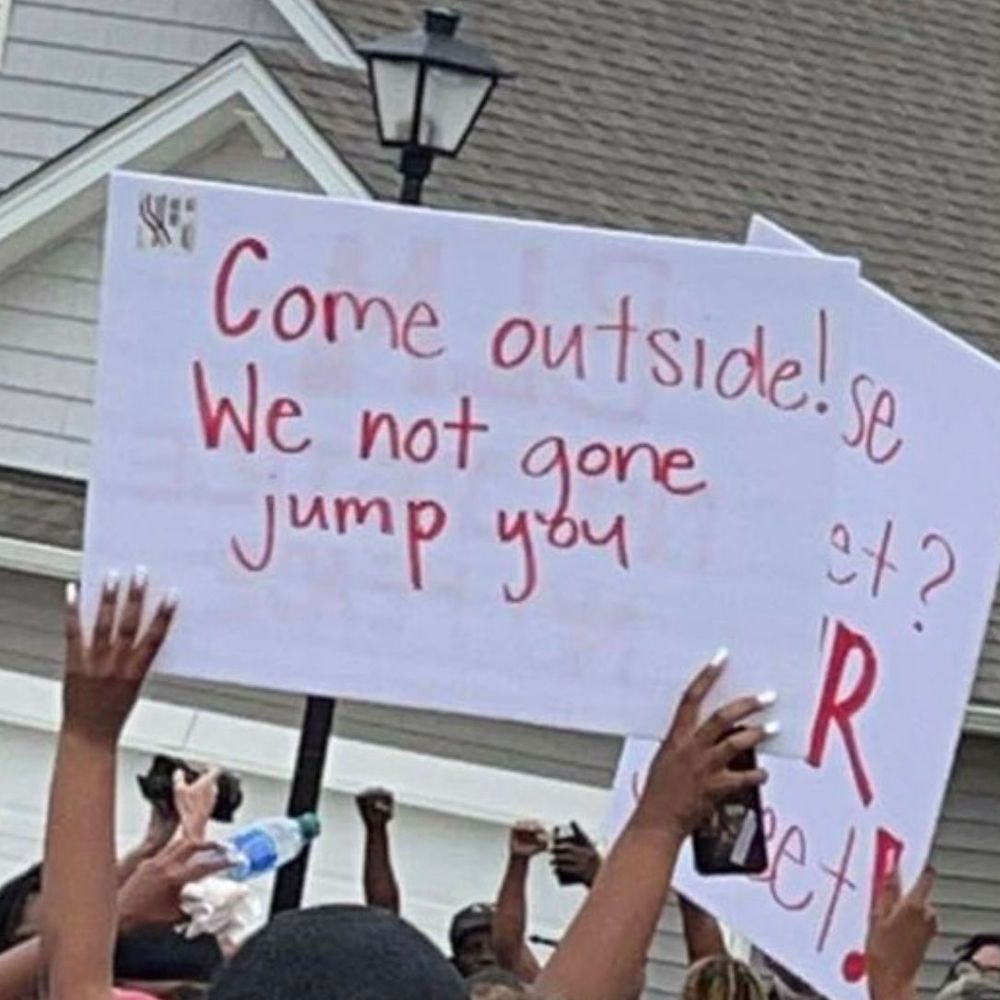 Come outside!
We not gone
jump you
se
et?
R
eet!